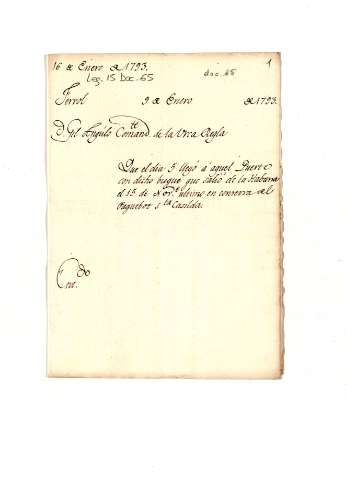 16 de Enero de 1793.
Leg. 15 Doc. 65
doc. 65
1
Ferrol 9 de Enero de 1793.
D. Gil Angulo Comand.te de la Urca Regla
Que el dia 5 llegó a aquel Puerto
con dicho buque que salio de la Habana
el 15 de Nov.e ultimo en conserva del
Paquebot S.ta Casilda.